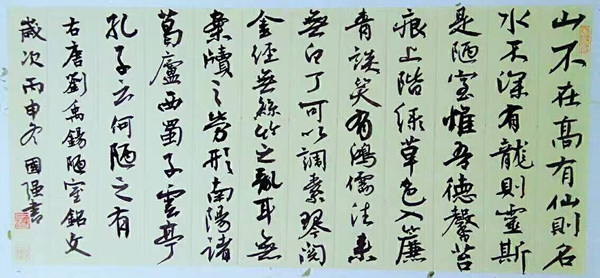 山不在高有仙則名
水不深有龍則靈斯
是陋室惟吾德馨苔
痕上階綠草色入簾
青談笑有鴻儒往來
無白丁可以調素琴閱
金經無絲竹之亂耳無
案牘之勞形南陽諸
葛廬西蜀子雲亭
孔子云何陋之有
右唐劉禹錫陋室銘文
歲次丙申冬國强書